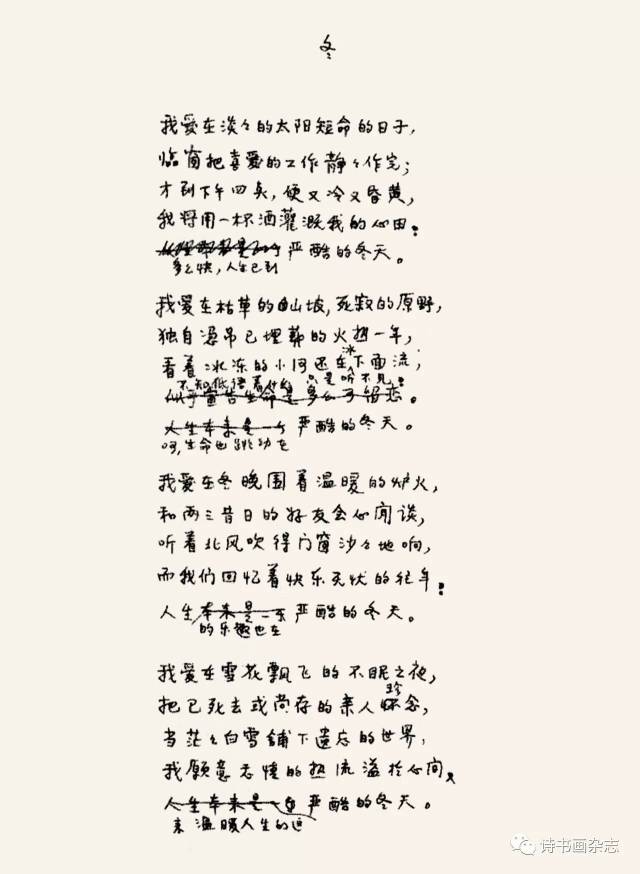 冬
我爱在淡々的太阳短命的日子，
临窗把喜爱的工作静々作完；
才到下午四点，便又冷又昏黄，
我将用一杯酒灌溉我的心田：
严酷的冬天。
多么快，人生已到
我爱在枯草的山坡，死寂的原野，
独自凭吊已埋葬的火热一年，
冰
看着冰冻的小河还在下面流；
不知低语着什么 只是听不见：
似乎宣告生命是多么可留恋。
人生本来是一个严酷的冬天。
呵，生命也跳动在
我爱在冬晚围着温暖的炉火，
和两三昔日的好友会心闲谈，
听着北风吹得门窗沙々地响，
而我们回忆着快乐无忧的往年：
人生本来是一个严酷的冬天。
的乐趣也在
我爱在雪花飘飞的不眠之夜，
珍
把已死去或尚存的亲人怀念，
当茫々白雪铺下遗忘的世界，
我愿意情的热流溢于心间，
人生本来是一个严酷的冬天。
来温暖人生的这
诗书画杂志